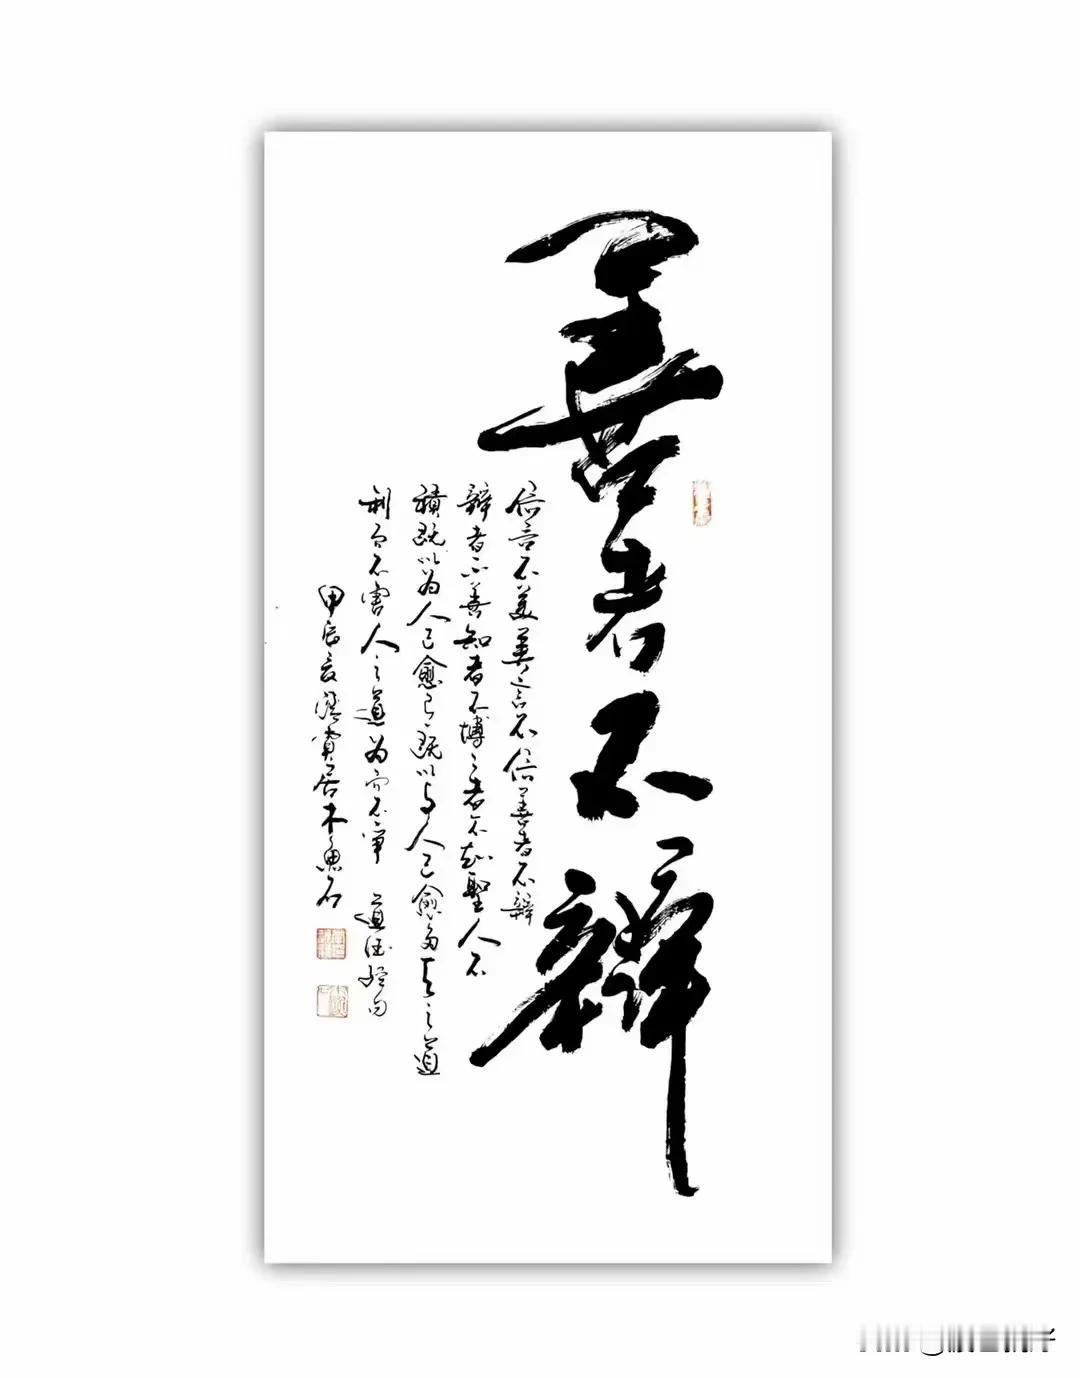 善者不辯
信言不美美言不信善者不辯
辯者不善知者不博之者不知聖人不
積既以為人己愈已既以与人己愈多天之道
利而不害人之道为而不争 道德经句
甲辰夏 賞居木魚石